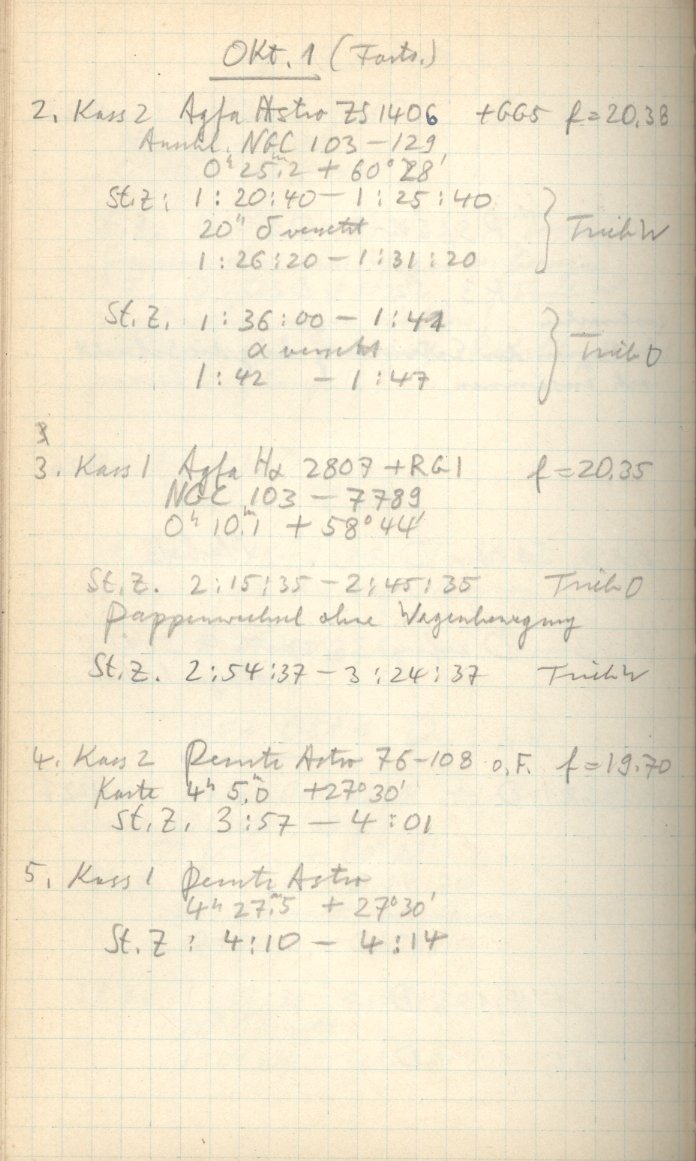 Okt. 1 (Forts.)
2. Kass 2 Agfa Astro ZS 1406 +GG5 f=20,38
Anschl. NGC 103 – 129
0ʰ 25ᵐ.2 + 60° 28'
St.Z: 1:20:40 – 1:25:40
20" δ versetzt
1:26:20 – 1:31:20
} Trieb W
St.Z. 1:36:00 – 1:41
α versetzt
1:42 – 1:47
} Trieb O
3. Kass 1 Agfa Hα 2807 + RG1 f=20,35
NGC 103 – 7789
0ʰ 10ᵐ.1 + 58° 44'
St.Z. 2:15:35 – 2:45:35 Trieb O
Pappenwechsel ohne Wagenbewegung
St.Z. 2:54:37 – 3:24:37 Trieb W
4. Kass 2 Perutz Astro 76-108 o.F. f=19.70
Karte 4ʰ 5ᵐ.0 +27° 30'
St.Z. 3:57 – 4:01
5. Kass 1 Perutz Astro
4ʰ 27ᵐ.5 + 27° 30'
St.Z: 4:10 – 4:14